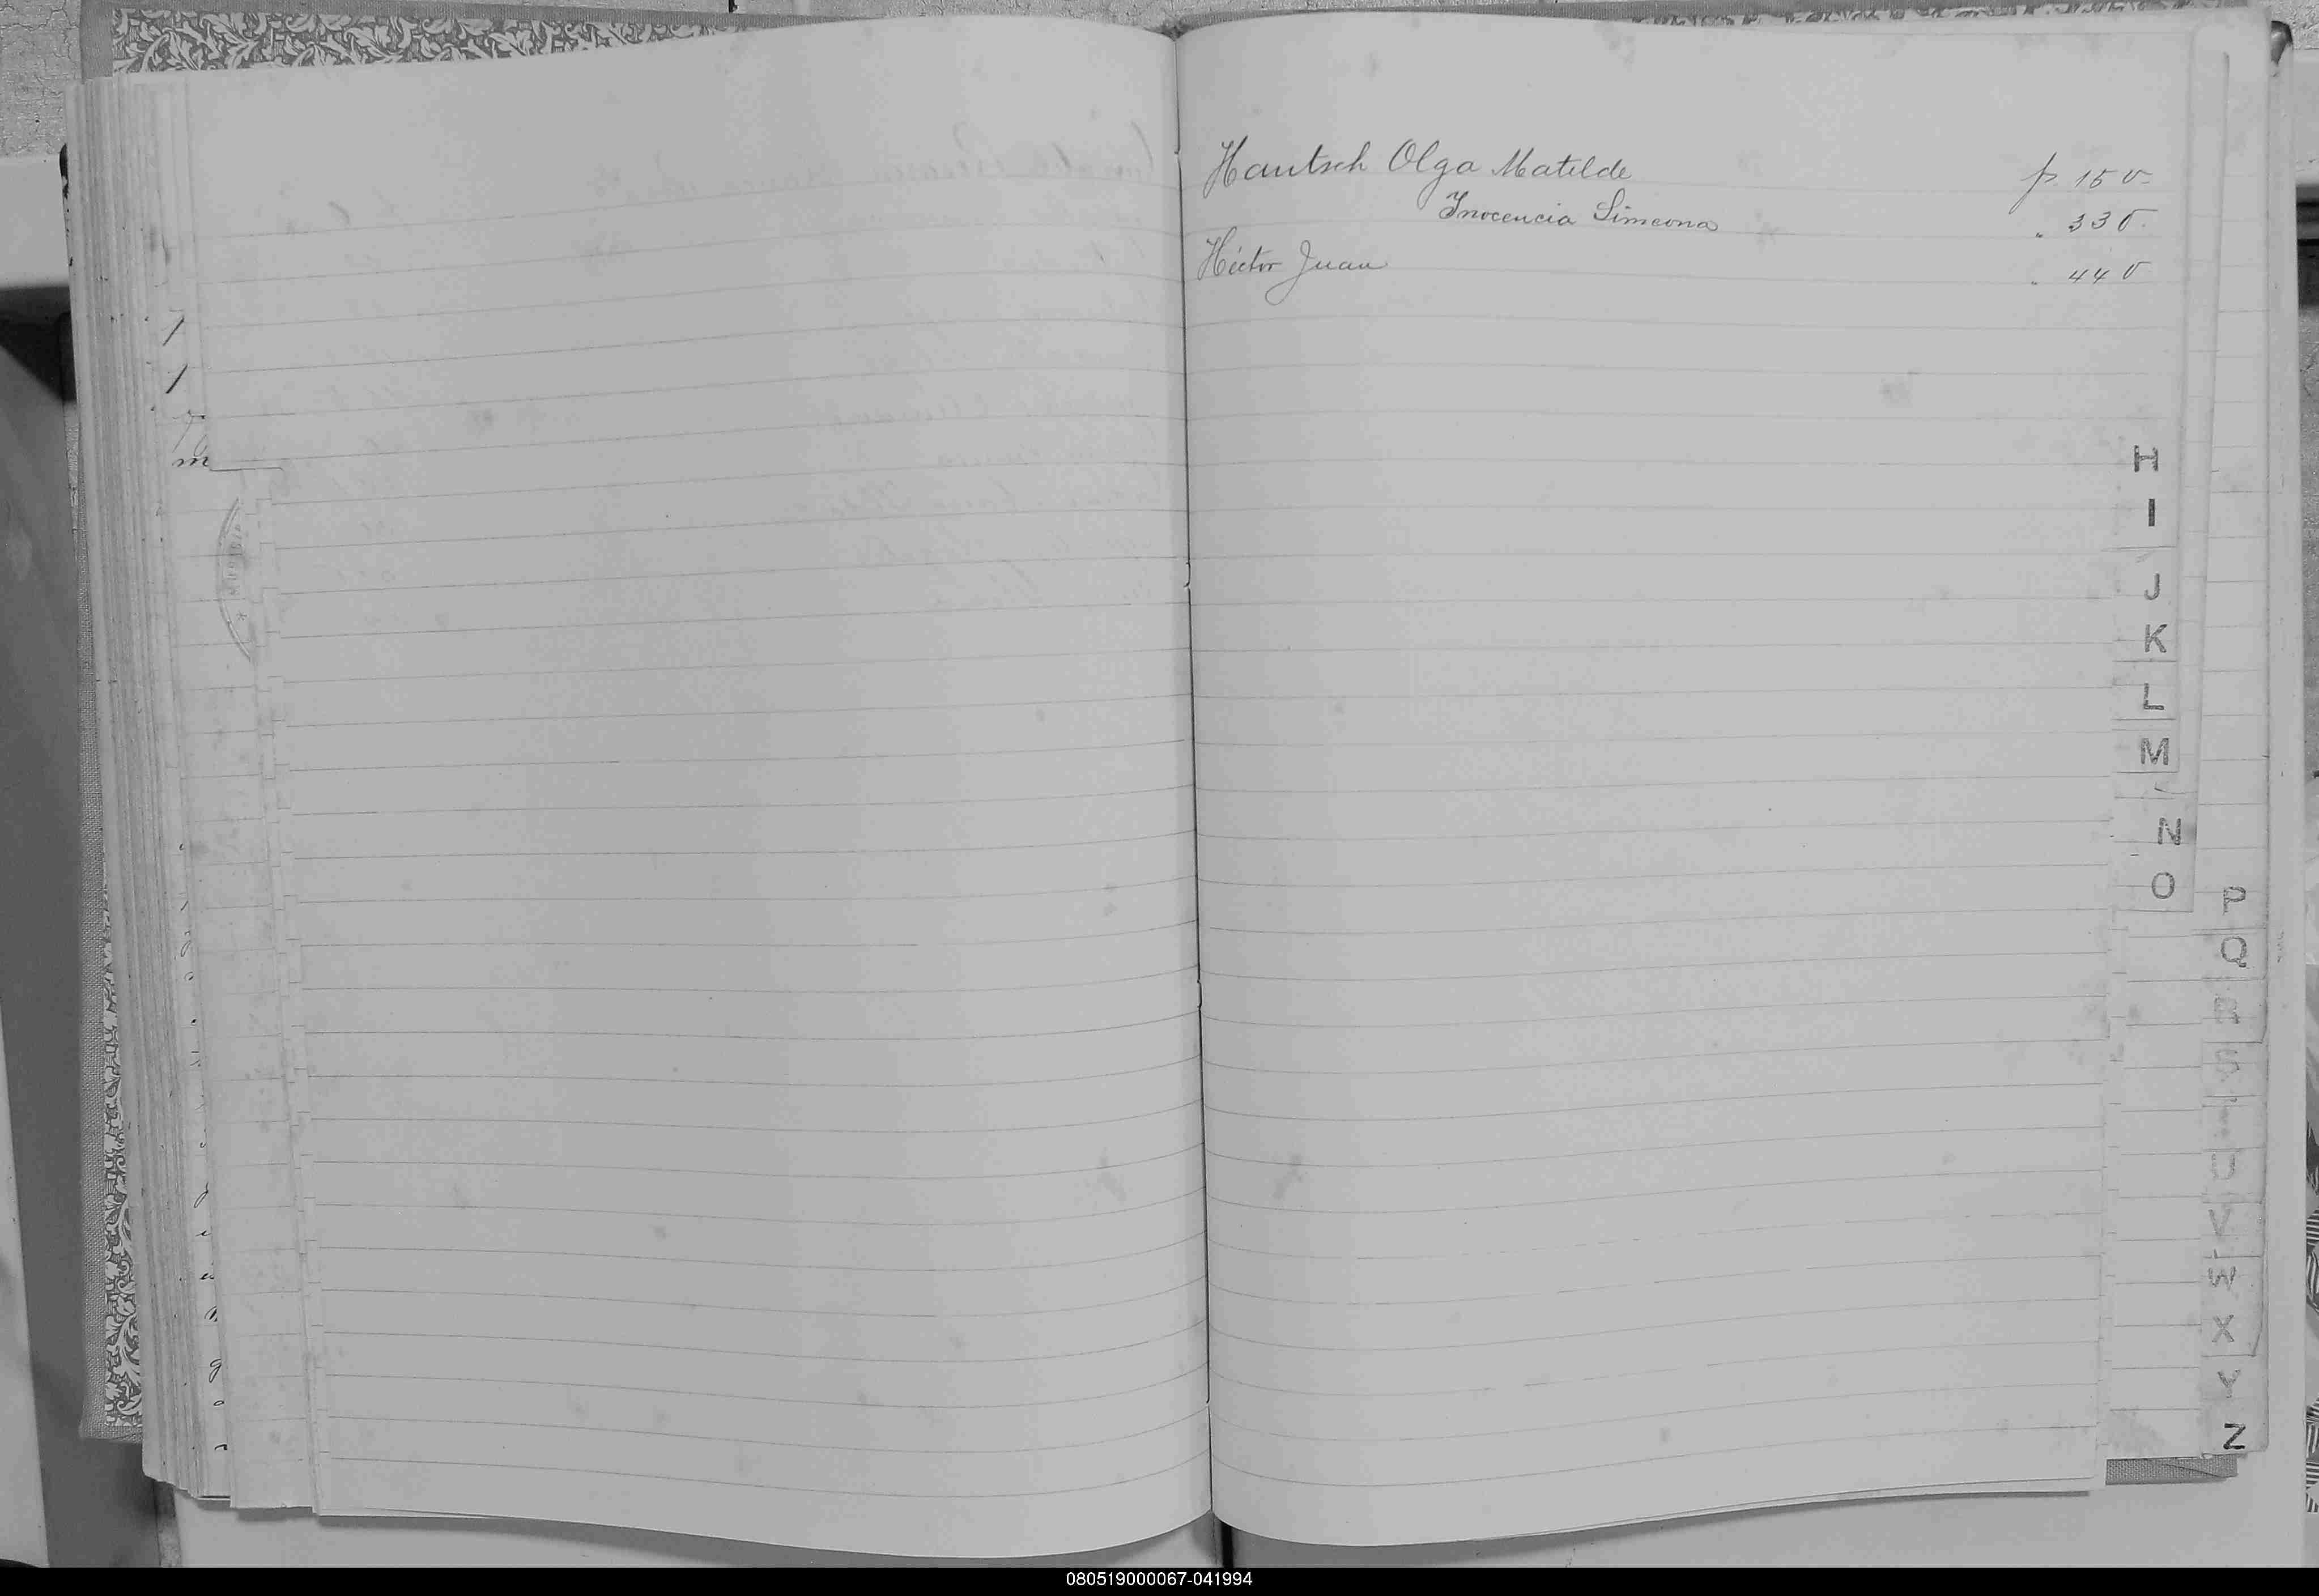 Hantsch Olga Matilde p 15 v.
Inocencia Simeona " 33 v.
Héctor Juan " 44 v
m
H
I
J
K
L
M
N
O
P
Q
R
S
T
U
V
W
X
Y
Z
080519000067-041994